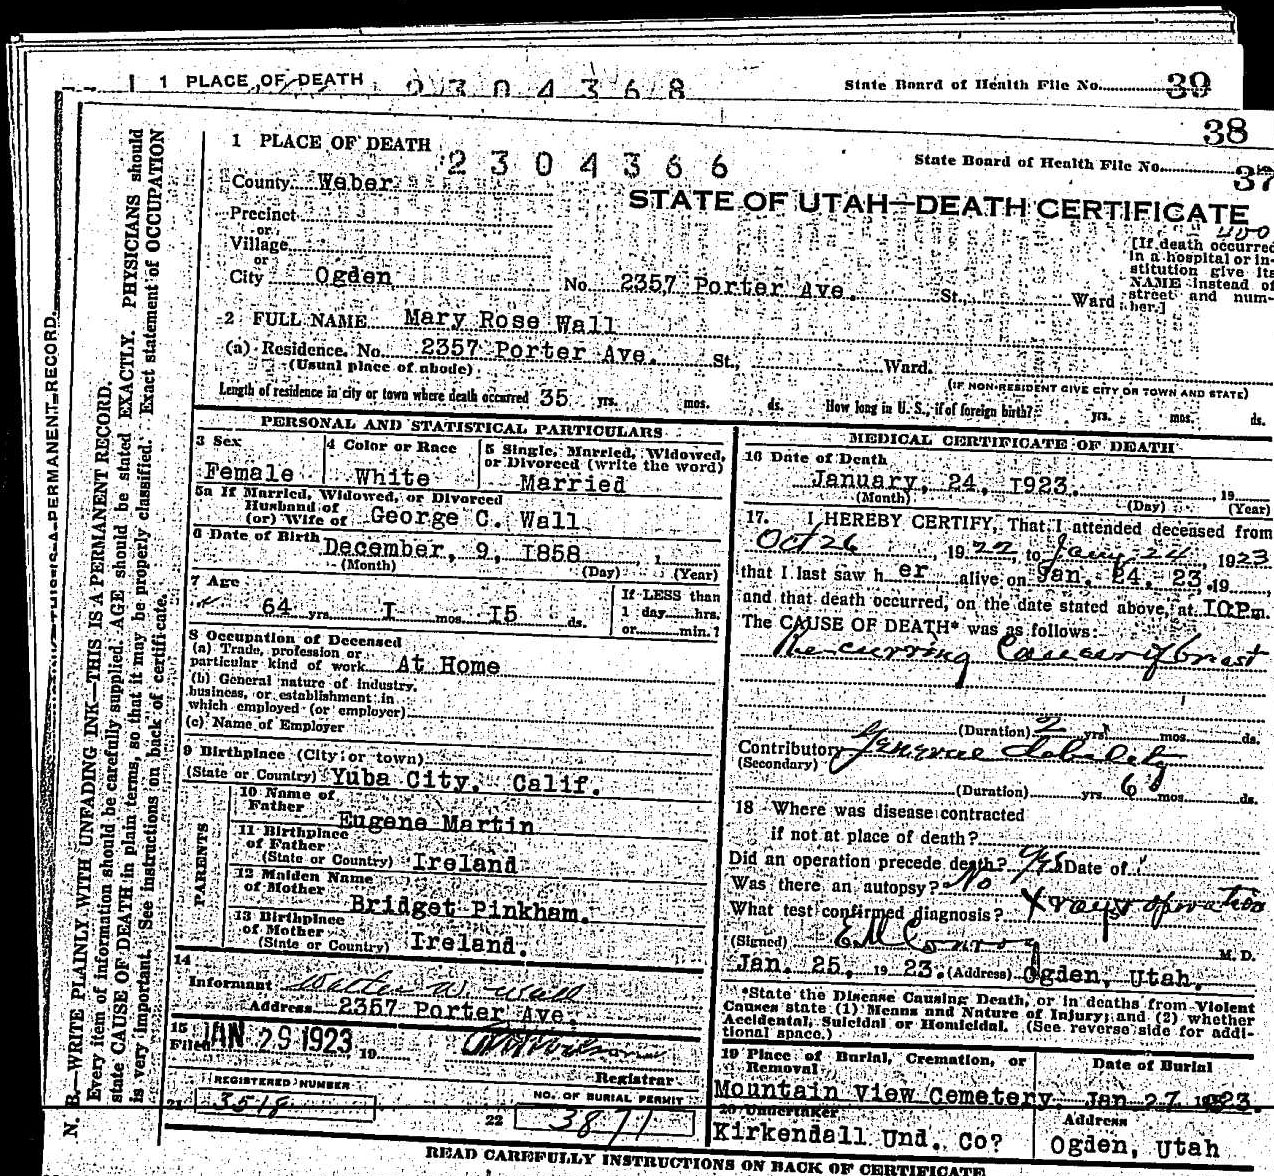 1 PLACE OF DEATH 2304368 State Board of Health File No. 39
38
1 PLACE OF DEATH 2304366 State Board of Health File No. 37
County Weber
STATE OF UTAH—DEATH CERTIFICATE
Precinct
or
Village
or
City Ogden No. 2357 Porter Ave. St., Ward
[If death occurred in a hospital or institution give its NAME instead of street and number.]
2 FULL NAME Mary Rose Wall
(a) Residence. No. 2357 Porter Ave. St., Ward.
(Usual place of abode) (IF NON-RESIDENT GIVE CITY OR TOWN AND STATE)
Length of residence in city or town where death occurred 35 yrs. mos. ds. How long in U. S., if of foreign birth? yrs. mos. ds.
PERSONAL AND STATISTICAL PARTICULARS
3 Sex
Female
4 Color or Race
White
5 Single, Married, Widowed, or Divorced (write the word)
Married
5a If Married, Widowed, or Divorced
Husband of
(or) Wife of George C. Wall
6 Date of Birth December, 9, 1858
(Month) (Day) (Year)
7 Age
64 yrs. I mos. I5 ds.
If LESS than
1 day hrs.
or min.?
8 Occupation of Deceased
(a) Trade, profession or
particular kind of work At Home
(b) General nature of industry,
business, or establishment in
which employed (or employer)
(c) Name of Employer
9 Birthplace (City or town)
(State or Country) Yuba City. Calif.
PARENTS
10 Name of
Father Eugene Martin
11 Birthplace
of Father
(State or Country) Ireland
12 Maiden Name
of Mother Bridget Pinkham.
13 Birthplace
of Mother
(State or Country) Ireland.
14
Informant Walter W. Wall
Address 2357 Porter Ave.
15
Filed JAN 29 1923 19
Registrar
REGISTERED NUMBER
21 3518
NO. OF BURIAL PERMIT
22 3871
MEDICAL CERTIFICATE OF DEATH
16 Date of Death
January, 24, I923. 19
(Month) (Day) (Year)
17. I HEREBY CERTIFY, That I attended deceased from
Oct 26, 1922, to Jany. 24, 1923
that I last saw her alive on Jan. 24, 23, 19
and that death occurred, on the date stated above, at IOPm.
The CAUSE OF DEATH* was as follows:
Recurring Cancer of breast
(Duration) 2 yrs. mos. ds.
Contributory General debility
(Secondary)
(Duration) yrs. 6 mos. ds.
18 Where was disease contracted
if not at place of death?
Did an operation precede death? Yes Date of "
Was there an autopsy? No
What test confirmed diagnosis? X rays & operation
(Signed) E M Conroy M. D.
Jan. 25, 19 23. (Address) Ogden, Utah.
*State the Disease Causing Death, or in deaths from Violent
Causes state (1) Means and Nature of Injury; and (2) whether
Accidental, Suicidal or Homicidal. (See reverse side for addi-
tional space.)
19 Place of Burial, Cremation, or
Removal
Mountain View Cemetery
Date of Burial
Jan 27 1923.
20 Undertaker
Kirkendall Und. Co?
Address
Ogden, Utah
READ CAREFULLY INSTRUCTIONS ON BACK OF CERTIFICATE
N. B.—WRITE PLAINLY, WITH UNFADING INK—THIS IS A PERMANENT RECORD.
Every item of information should be carefully supplied. AGE should be stated EXACTLY. PHYSICIANS should
state CAUSE OF DEATH in plain terms, so that it may be properly classified. Exact statement of OCCUPATION
is very important. See instructions on back of certificate.
THIS IS A PERMANENT RECORD.